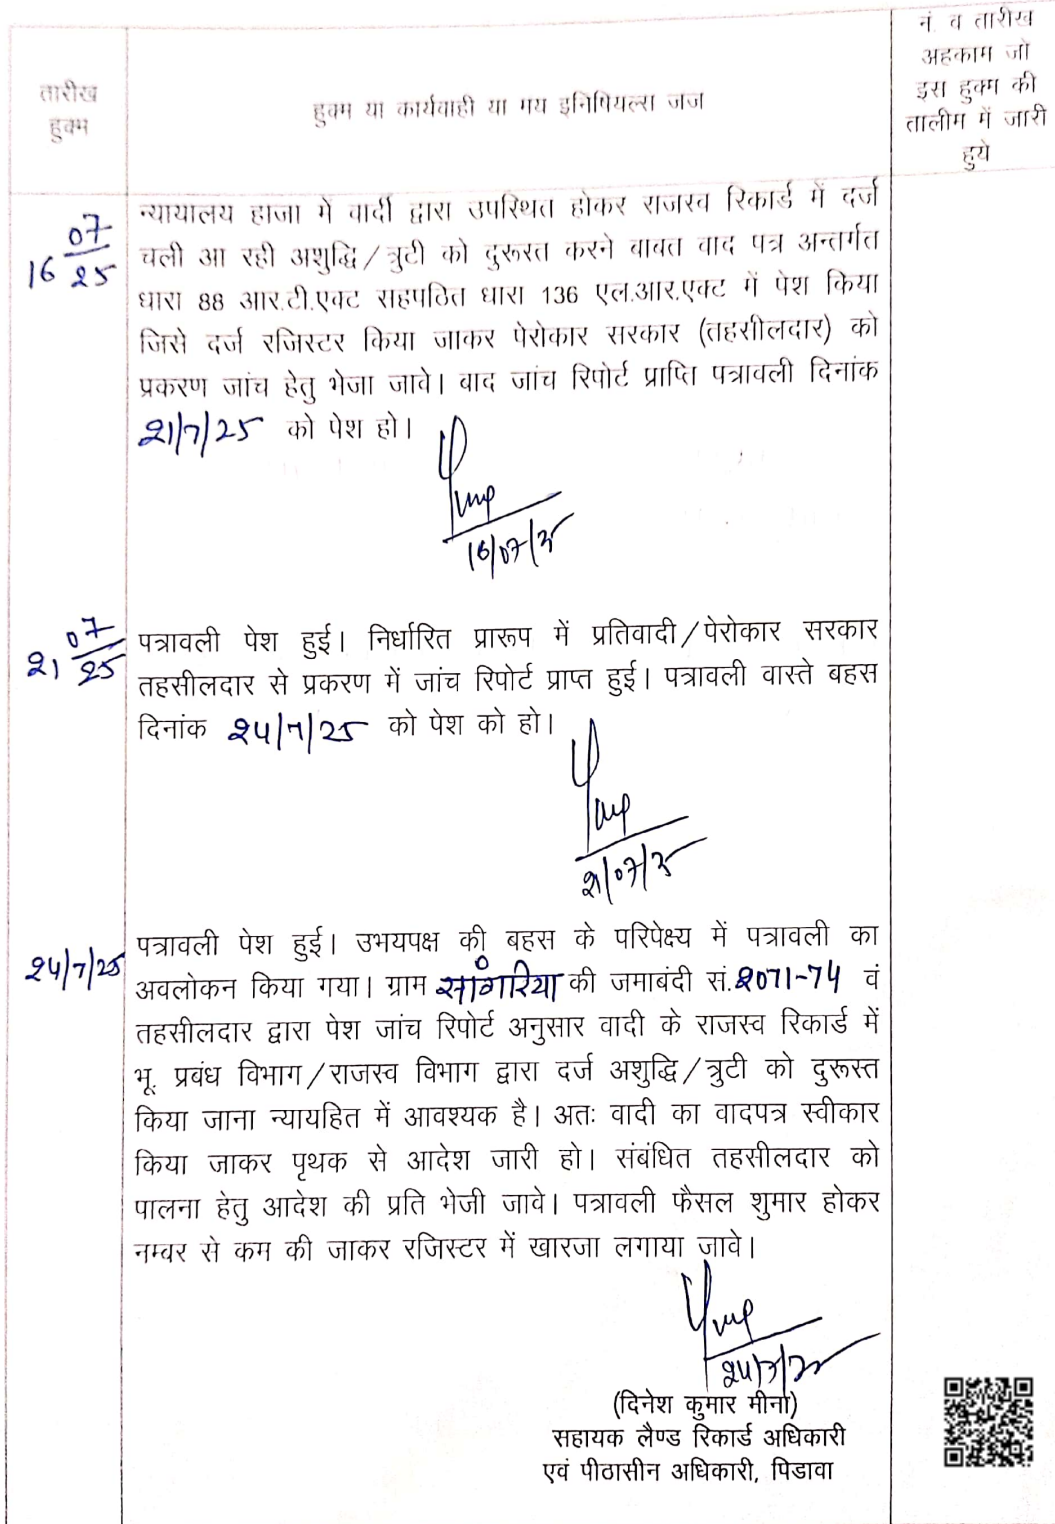 नं व तारीख
अहकाम जो
इस हुक्म की
तालीम में जारी
हुये
तारीख
हुक्म
हुक्म या कार्यवाही या मय इनिषियल्स जज
16 07/25
न्यायालय हाजा में वादी द्वारा उपस्थित होकर राजस्व रिकार्ड में दर्ज
चली आ रही अशुद्धि/त्रुटी को दुरूस्त करने बाबत वाद पत्र अन्तर्गत
धारा 88 आर.टी.एक्ट सहपठित धारा 136 एल.आर.एक्ट में पेश किया
जिसे दर्ज रजिस्टर किया जाकर पेरोकार सरकार (तहसीलदार) को
प्रकरण जांच हेतु भेजा जावे। बाद जांच रिपोर्ट प्राप्ति पत्रावली दिनांक
21/7/25 को पेश हो।
16/07/25
21 07/25
पत्रावली पेश हुई। निर्धारित प्रारूप में प्रतिवादी/पेरोकार सरकार
तहसीलदार से प्रकरण में जांच रिपोर्ट प्राप्त हुई। पत्रावली वास्ते बहस
दिनांक 24/7/25 को पेश को हो।
21/07/25
24/7/25
पत्रावली पेश हुई। उभयपक्ष की बहस के परिपेक्ष्य में पत्रावली का
अवलोकन किया गया। ग्राम सांगरिया की जमाबंदी सं.2071-74 वं
तहसीलदार द्वारा पेश जांच रिपोर्ट अनुसार वादी के राजस्व रिकार्ड में
भू. प्रबंध विभाग/राजस्व विभाग द्वारा दर्ज अशुद्धि/त्रुटी को दुरूस्त
किया जाना न्यायहित में आवश्यक है। अतः वादी का वादपत्र स्वीकार
किया जाकर पृथक से आदेश जारी हो। संबंधित तहसीलदार को
पालना हेतु आदेश की प्रति भेजी जावे। पत्रावली फैसल शुमार होकर
नम्बर से कम की जाकर रजिस्टर में खारजा लगाया जावे।
24/7/25
(दिनेश कुमार मीना)
सहायक लैण्ड रिकार्ड अधिकारी
एवं पीठासीन अधिकारी, पिडावा